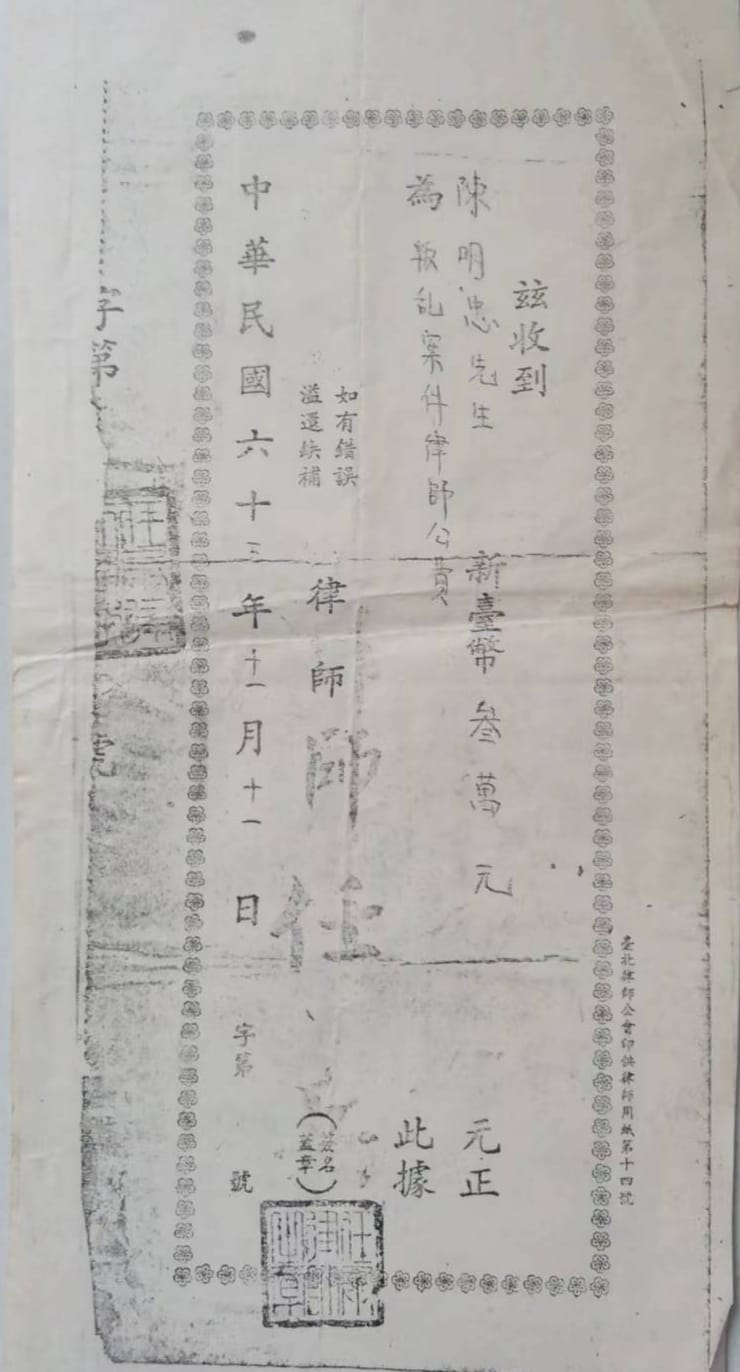 臺北律師公會印供律師用紙第十四號
茲收到
陳明忠先生
新臺幣叁萬元
元正
為叛乱案件律師公費
此據
如有錯誤
溢還缺補
律師
師任
(簽名蓋章)
中華民國六十三年十一月十一日
字第
號
字第
號